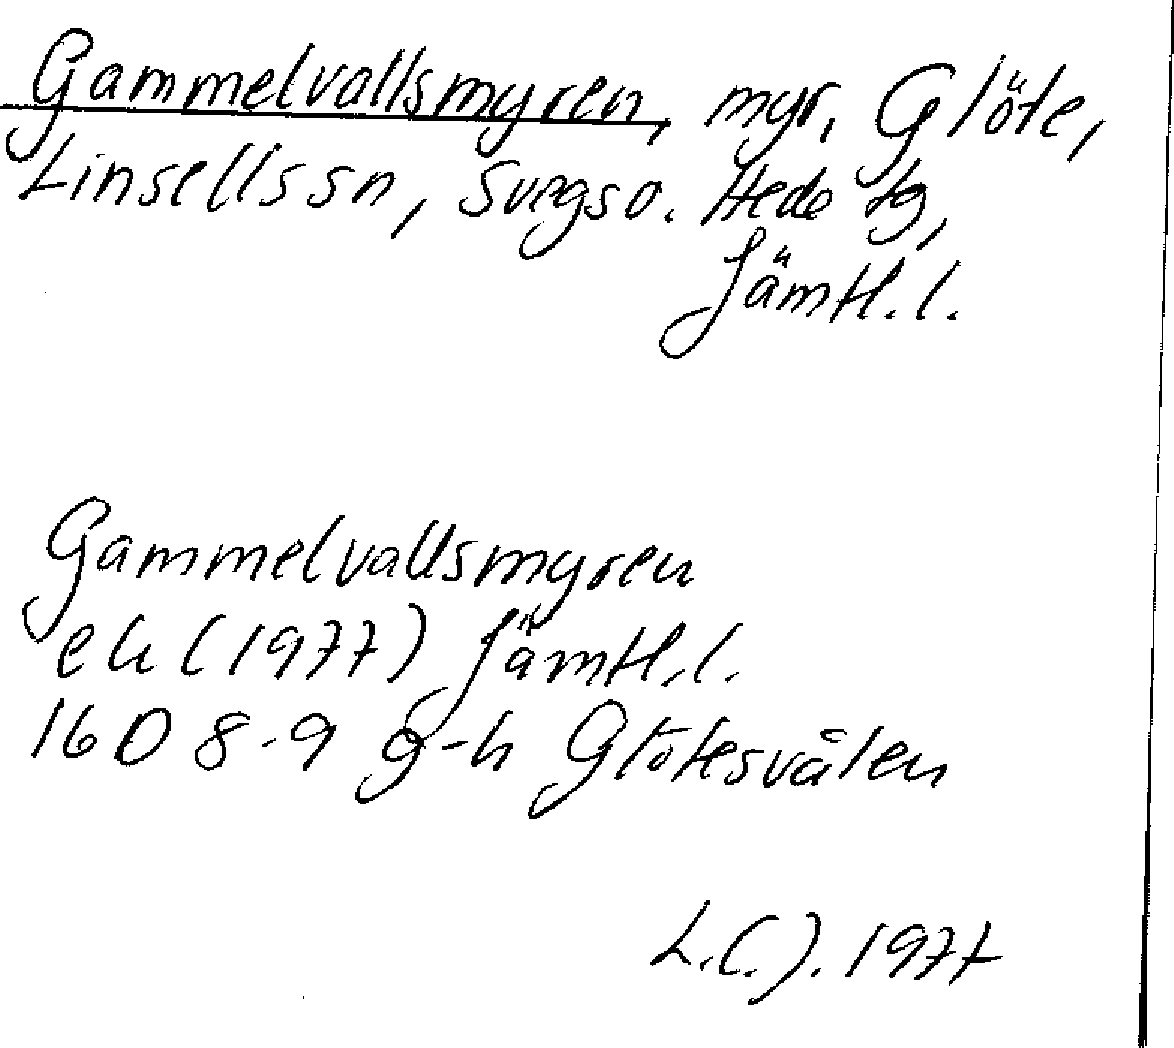 Gammelvallsmyren, myr, Glöte,
Linsells sn, Svegs o. Hede tg,
Jämtl. l.
Gammelvallsmyren
ek (1977) Jämtl. l.
16D 8-9 g-h Glötesvålen
L.C.J. 1977